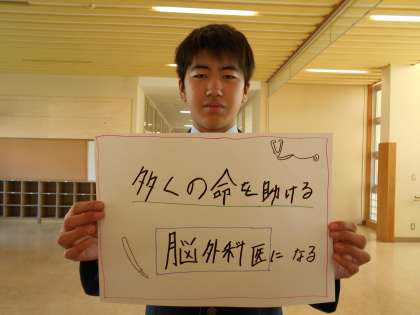 多くの命を助ける
脳外科医になる